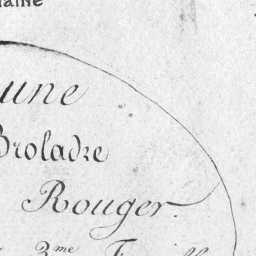 une
Broladre
Rouger.
3.me